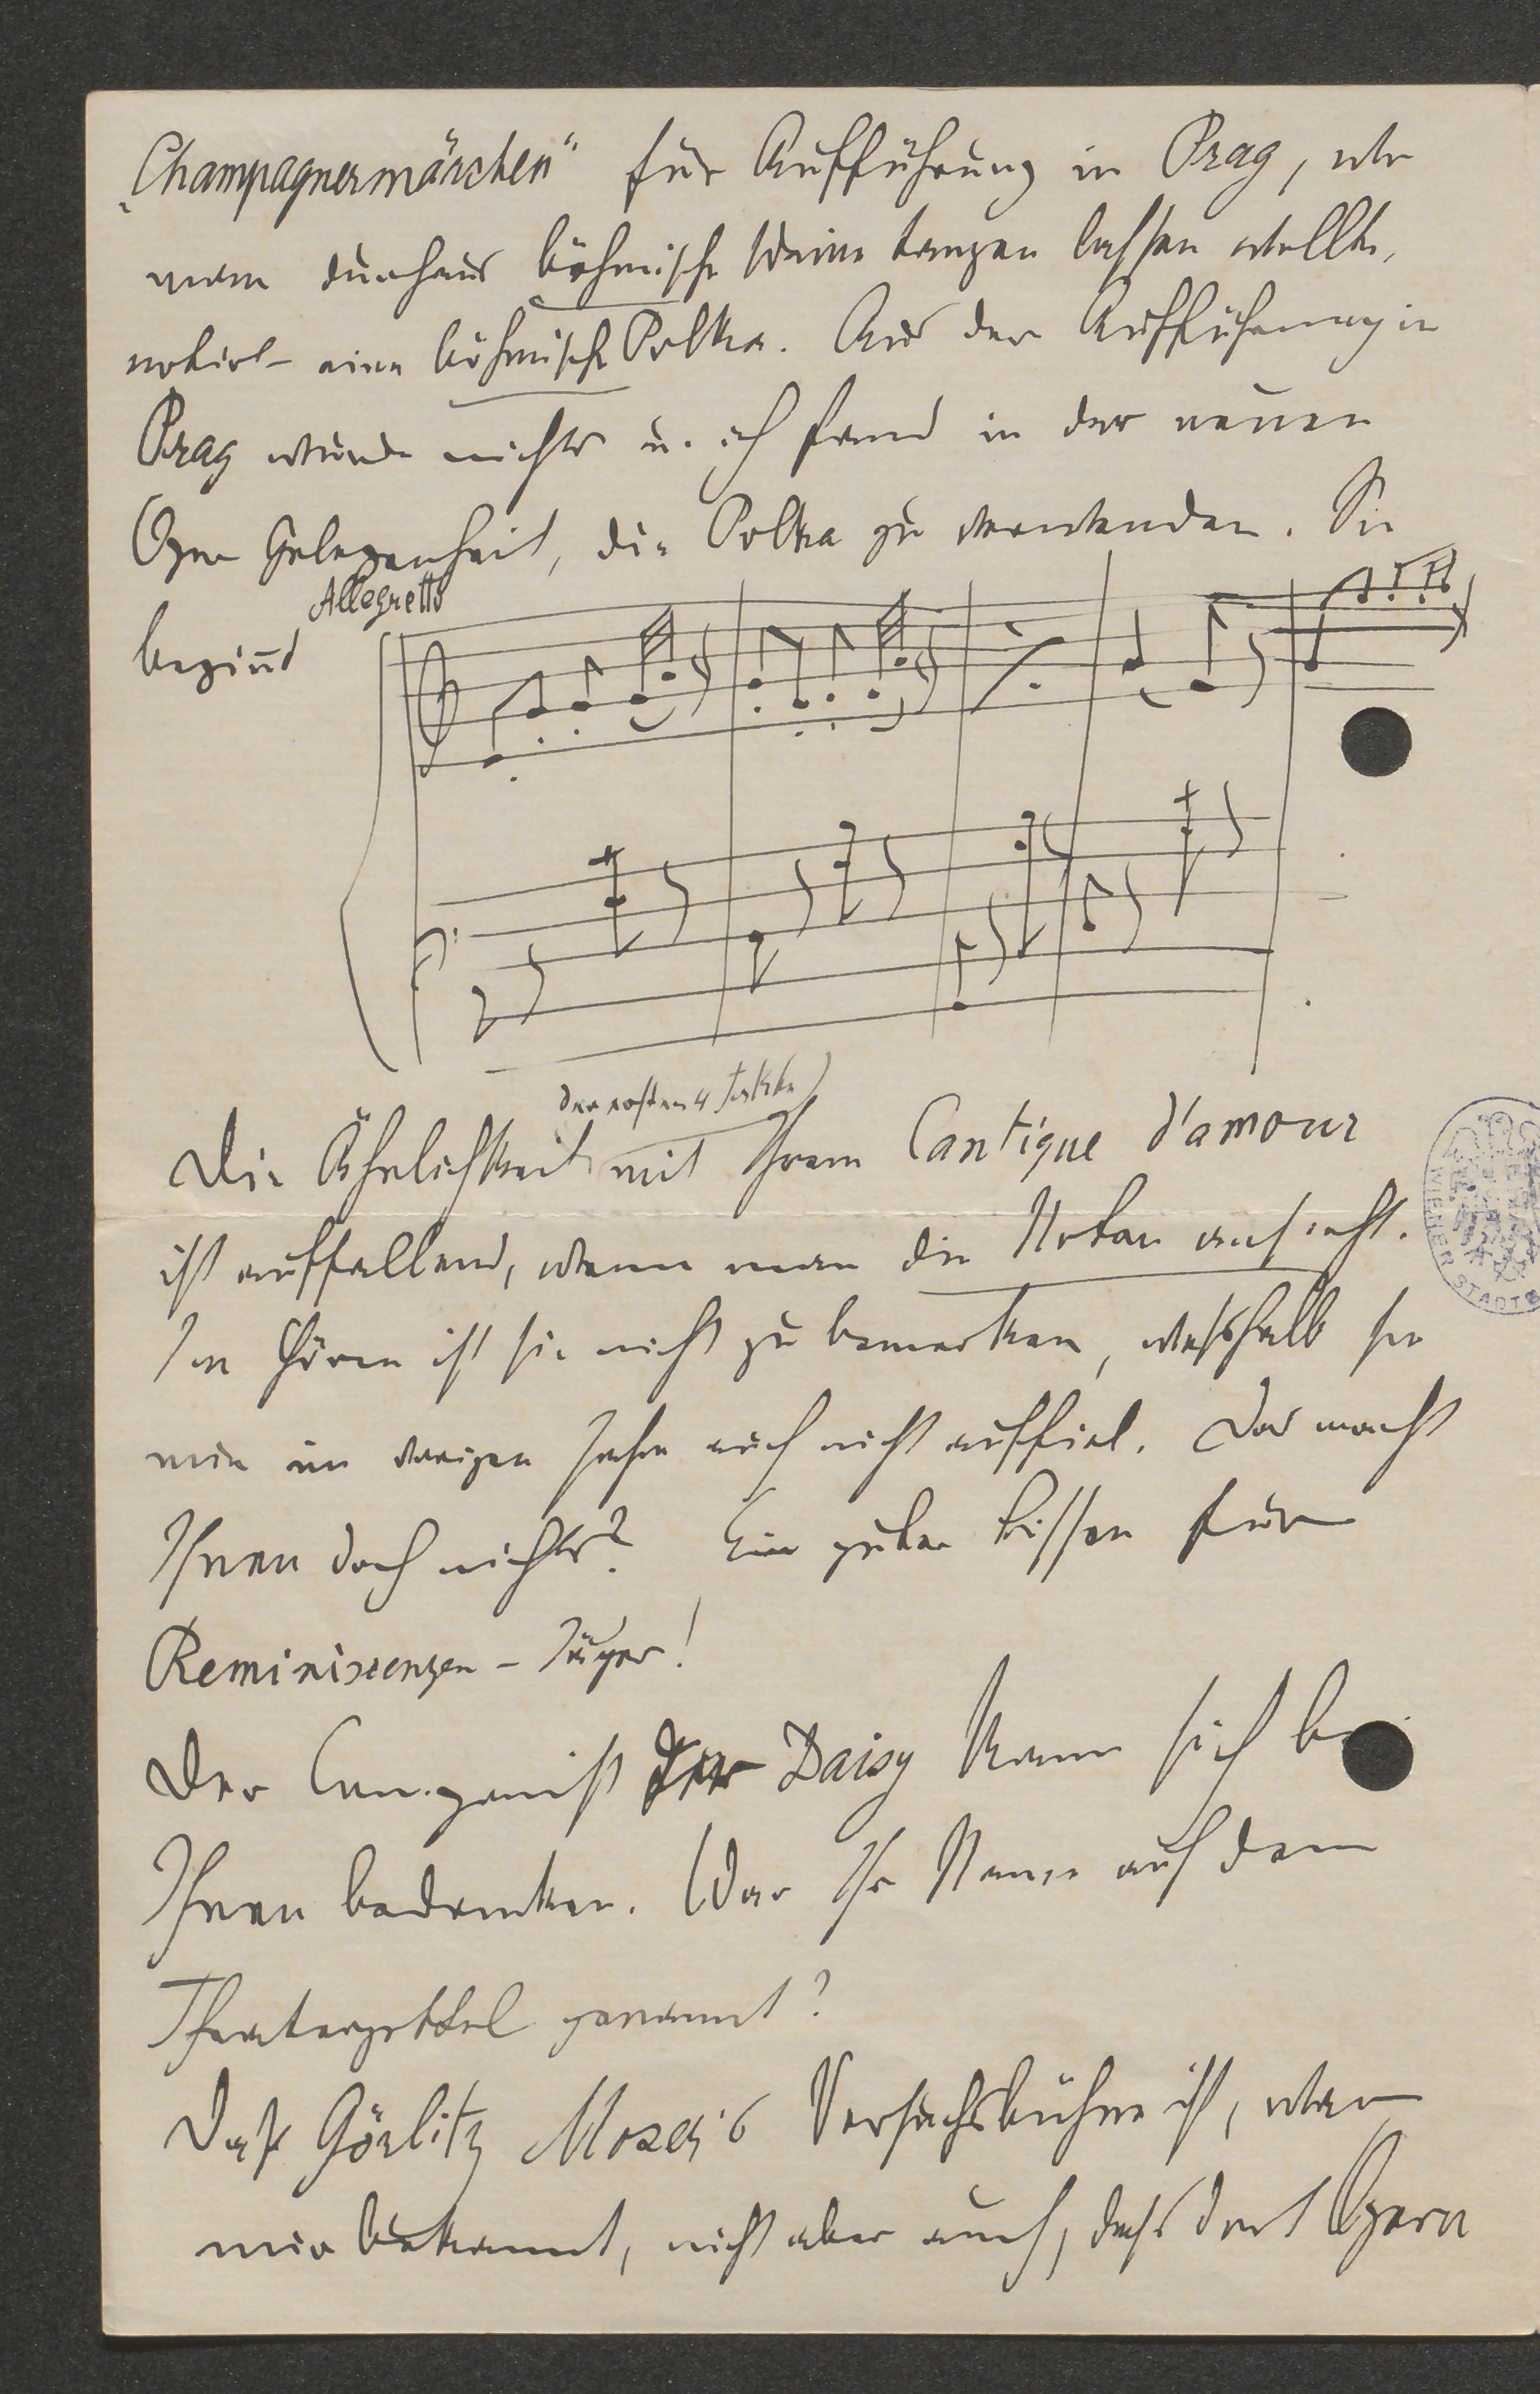 „Champagnermärchen" für Aufführung in Prag, wo
man durchaus böhmische Weine tanzen lassen wollte,
notirt eine böhmische Polka. Aus der Aufführung in
Prag wurde nichts u. ich fand in der neuen
Oper Gelegenheit, die Polka zu verwenden. Sie
beginnt
Allegretto
der ersten 4 Takte)
Die Ähnlichkeit mit Ihrem Cantique d'amour
ist auffallend, wenn man die Noten ansieht.
Im Hören ist sie nicht zu bemerken, weßhalb sie
mir im vorigen Jahre auch nicht auffiel. Das macht
Ihnen doch nichts? Ein guter Bissen für
Reminiscenzen-Jäger!
Der Componist der Daisy kann sich bei
Ihnen bedanken. War Ihr Name auf dem
Theaterzettel genannt?
Daß Görlitz Moser's Versuchsbühne ist, war
mir bekannt, nicht aber auch, dass dort Opern
WIENER STADT